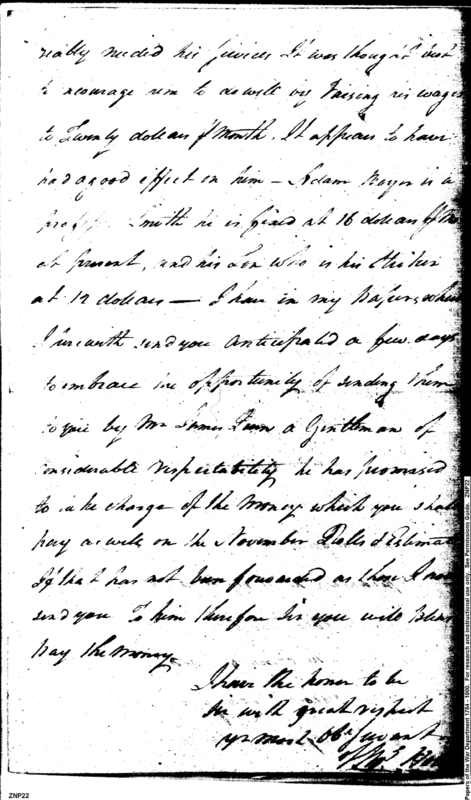 really needed his services It was thought best
to encourage him to do well by Raising his wages
to Twenty dollars pr Month. It appears to have
had a good effect on him – Adam is a
Smith he is fixed at 16 dollars pr
at present, and his Son who is his Striker
at 12 dollars — I have in my Papers, which
I herewith send you anticipated a few days
to embrace the opportunity of sending them
to you by Mr James a Gentleman of
considerable respectability he has promised
to take charge of the Money which you shall
pay as well on the November Rolls & Estimate
If that has not been forwarded as those I now
send you To him therefore Sir you will Please
Pay the Money
I have the honor to be
Sir with great respect
yr most Obt Servant
ZNP22
Papers of the War Department 1784 - 1800. For research and instructional use only. See Permissions Guide. ZNP22